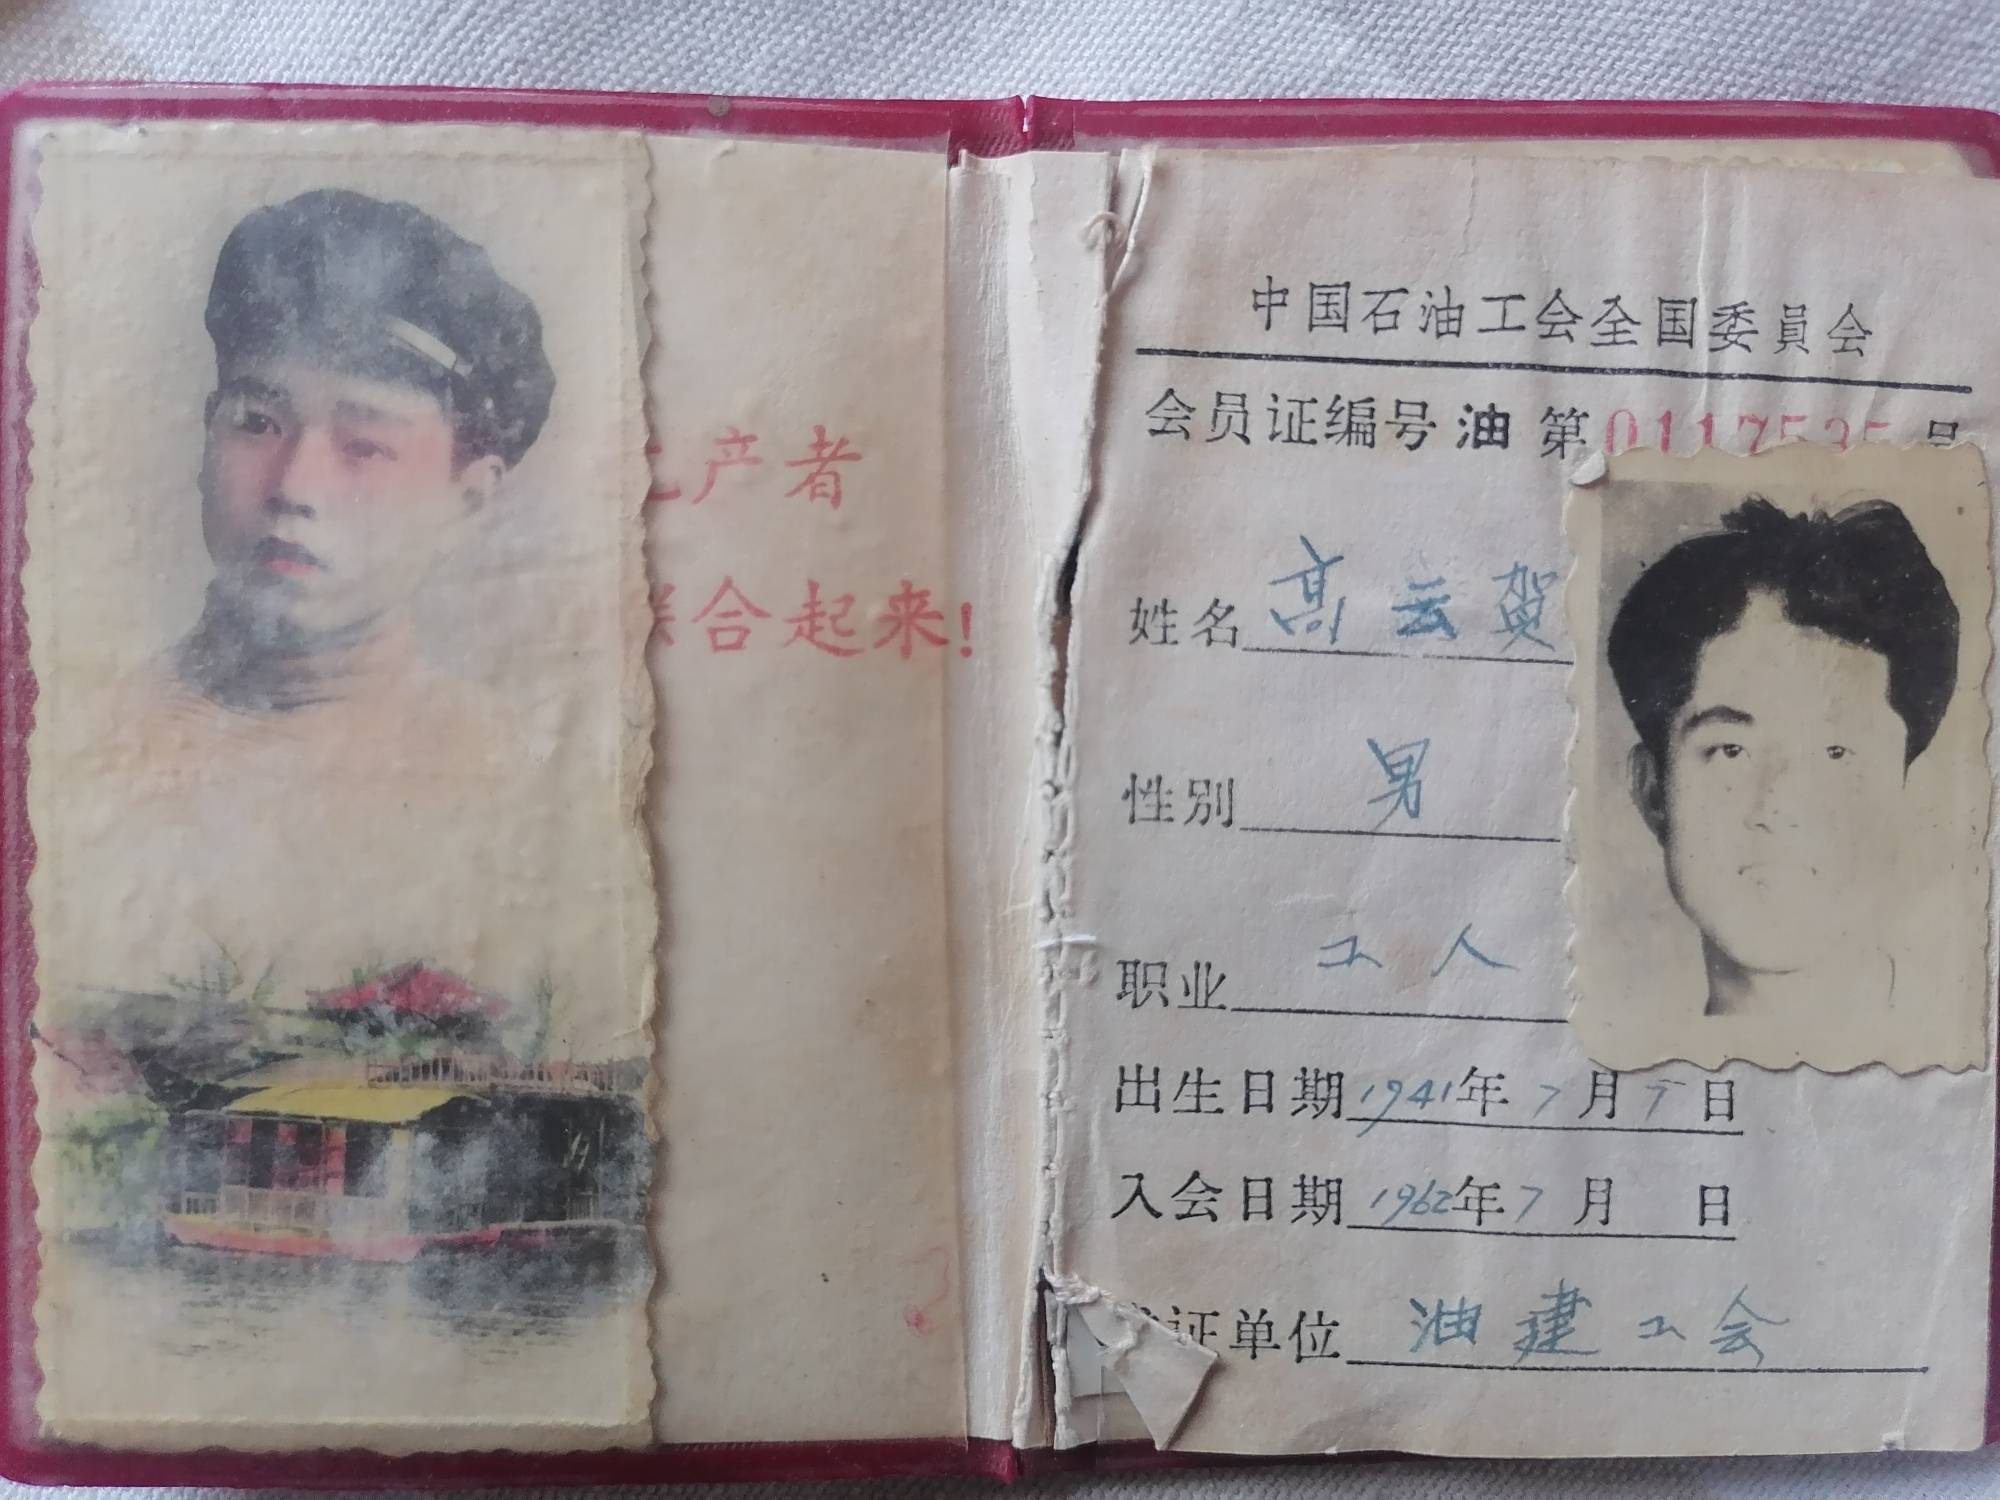 产者
联合起来!
中国石油工会全国委員会
会员证编号 油 第 0117535 号
姓名 高云贺
性别 男
职业 工人
出生日期 1941年 7 月 7 日
入会日期 1962年 7 月 日
证单位 油建工会